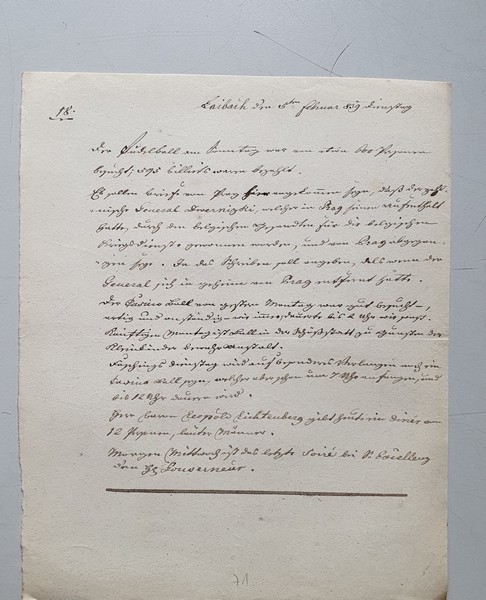 18.
Laibach den 5ten Februar 839 Dienstag
Der Südelball am Sonntag war von etwa 600 Personen
besucht; 595 Billets waren bezahlt.
Es sollen Briefe von Prag hier angekommen seyn, daß der pohl-
nische General Dwernizki, welcher in Prag seinen Aufenthalt
hatte, durch den belgischen Gesandten für die belgischen
Kriegsdienste gewonnen worden, und von Prag abgegan-
gen seye. In das Schreiben soll angeben, als wenn der
General sich in geheim von Prag entfernt hätte.
Der Casino Ball von gestern Montag war gut besucht,
artig und anständig wie immer, dauerte bis 2 Uhr wie sonst.
Künftigen Montag ist Ball in der Schießstatt zu Gunsten der
Kleinkinder bewahranstalt.
Faschings Dienstag wird auf besonderes Verlangen noch ein
Casino Ball seyn, welcher aber schon um 7 Uhr anfangen, und
bis 12 Uhr dauern wird.
Herr Baron Leopold Lichtenberg gibt heute ein Diner von
12 Personen, lauter Männer.
Morgen Mittwoch ist das letzte Soiré bei Sr. Excellenz
dem H. Gouverneur.
71